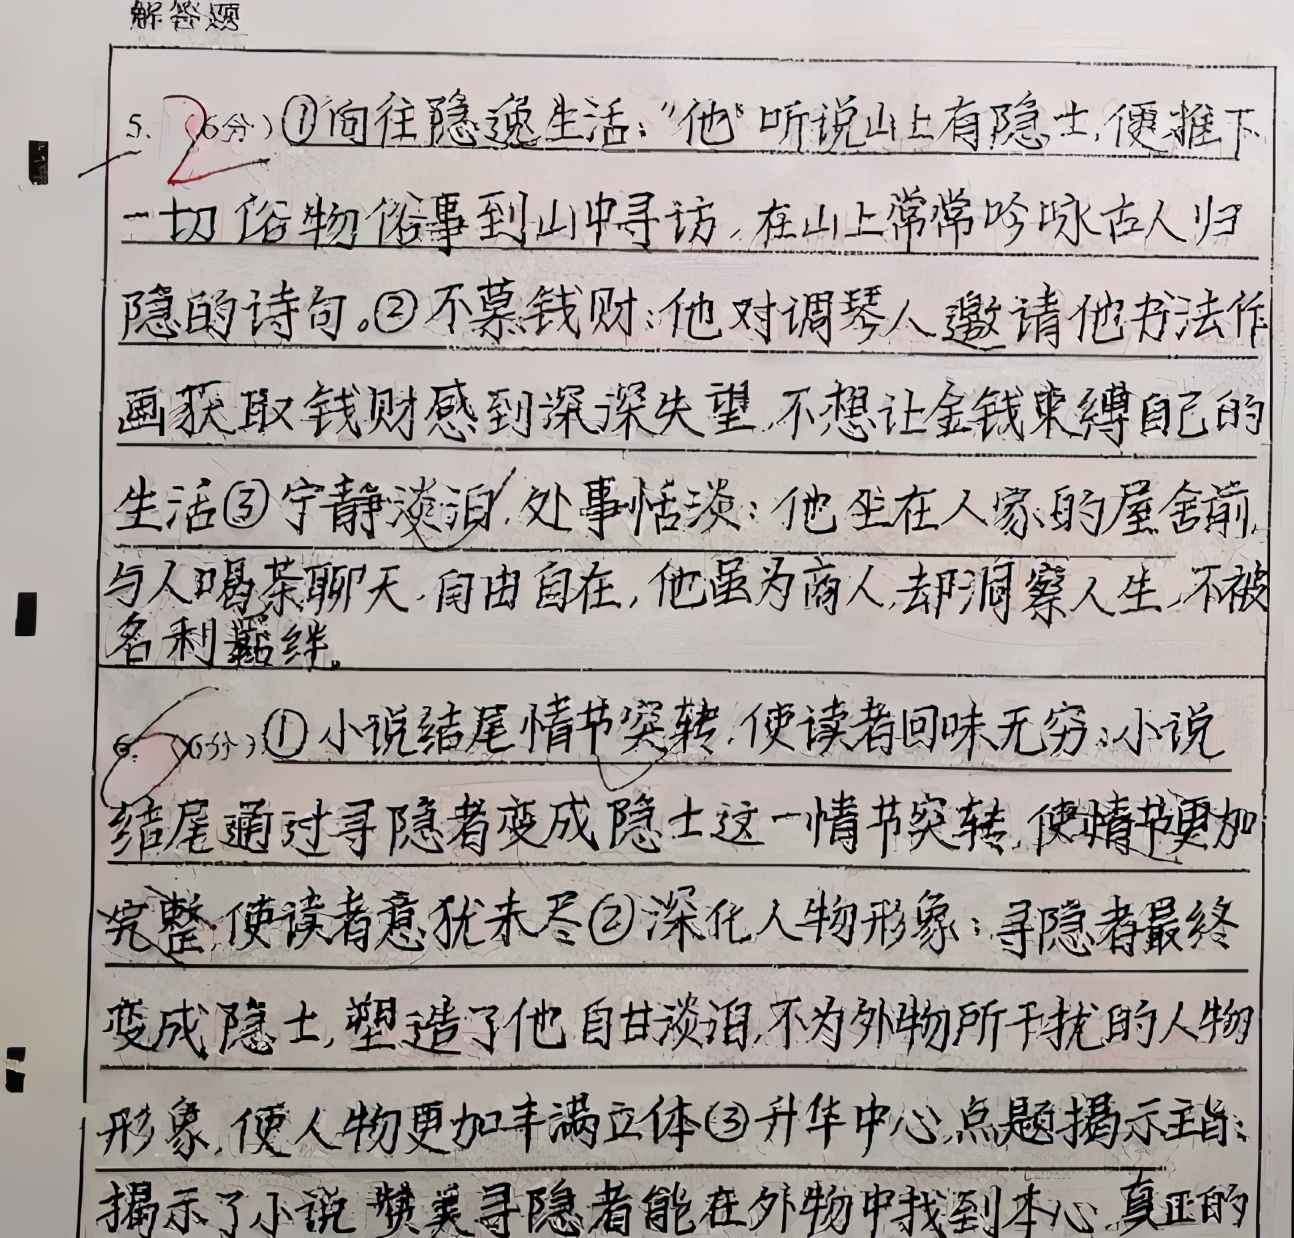 解答题
5. 2 (6分) ①向往隐逸生活："他"听说山上有隐士,便推下
一切俗物俗事到山中寻访,在山上常常吟咏古人归
隐的诗句。②不慕钱财:他对调琴人邀请他书法作
画获取钱财感到深深失望,不想让金钱束缚自己的
生活③宁静淡泊,处事恬淡:他坐在人家的屋舍前,
与人喝茶聊天,自由自在,他虽为商人,却洞察人生,不被
名利羁绊。
6. (6分) ①小说结尾情节突转,使读者回味无穷:小说
结尾通过寻隐者变成隐士这一情节突转,使情节更加
完整,使读者意犹未尽②深化人物形象:寻隐者最终
变成隐士,塑造了他自甘淡泊,不为外物所干扰的人物
形象,使人物更加丰满立体③升华中心,点题揭示主旨:
揭示了小说赞美寻隐者能在外物中找到本心,真正的